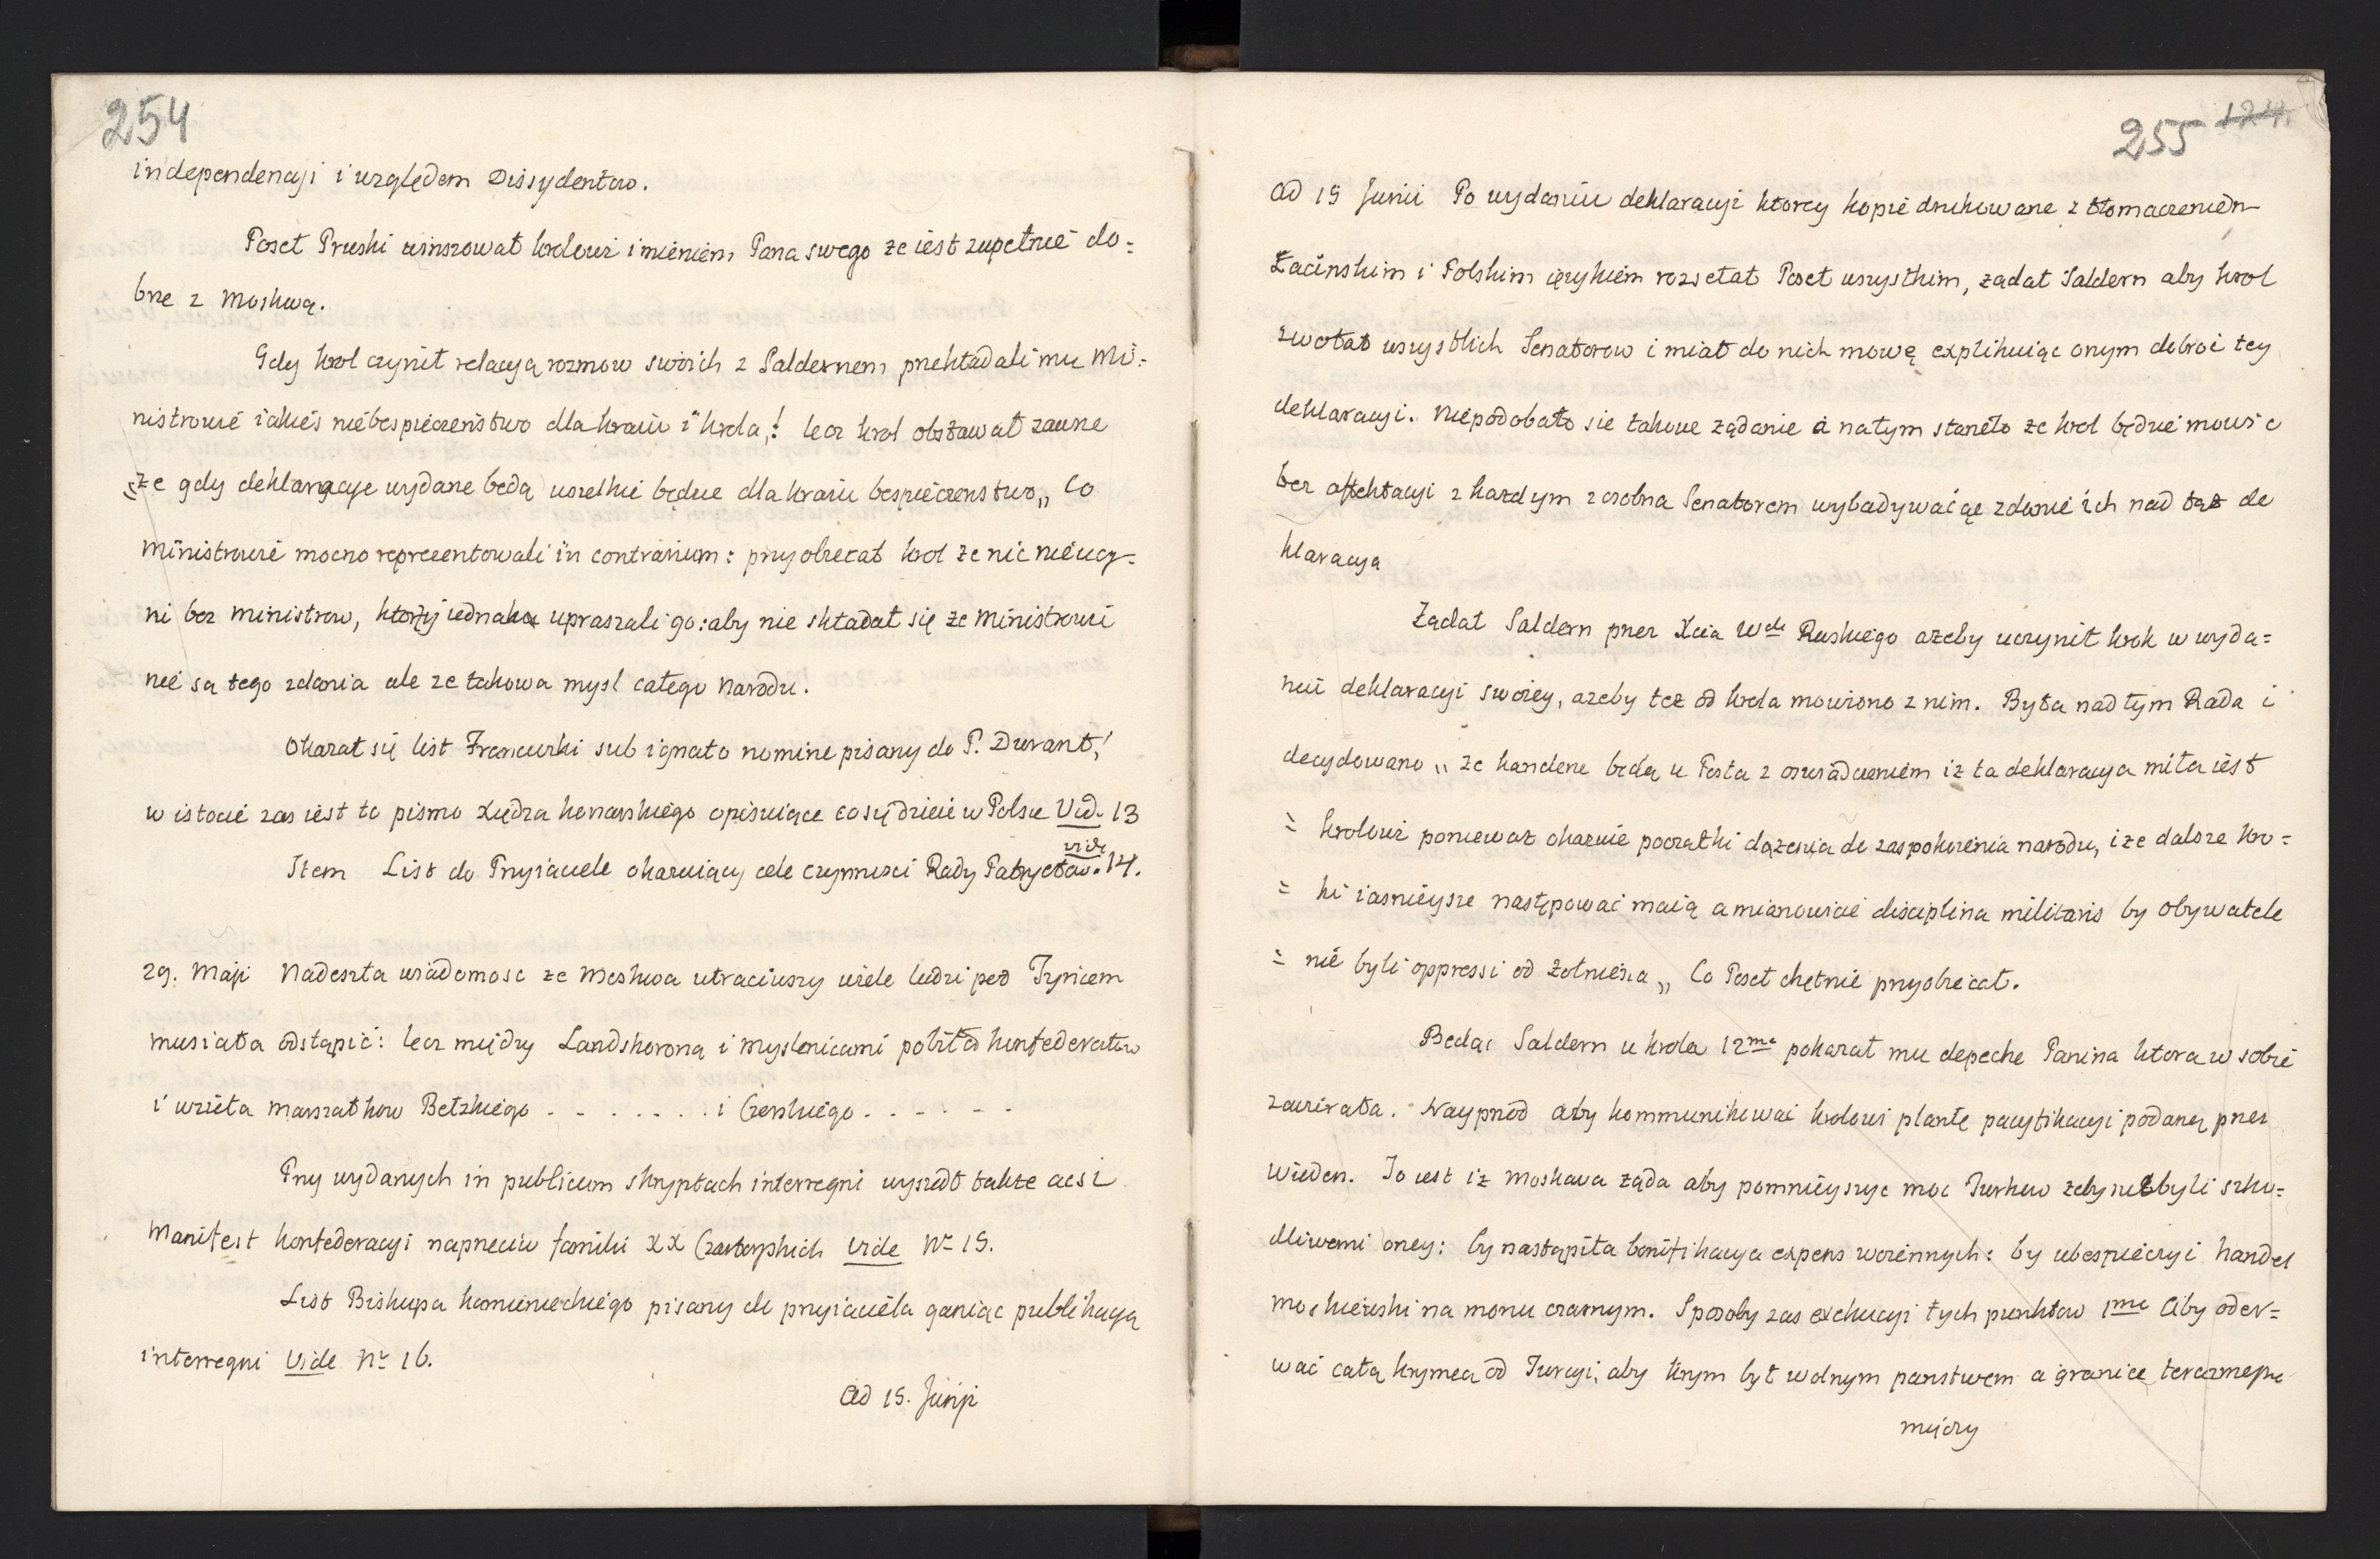 254
independencyi i względem Dissydentow.
Poseł Pruski winszował krolowi imieniem Pana swego ze iest zupełnie do=
bne z Moskwą.
Gdy krol czynił relacyą rozmow swoich z Saldernem przekładali mu Mi=
nistrowie iakieś niebespieczeństwo dla kraiu i krola,! lecz krol obstawał zawsze
„że gdy deklaracye wydane będą wszelkie będzie dla kraiu bespieczenstwo„ Co
Ministrowie mocno reprezentowali in contrarium: przyobiecał krol że nic nieuczy=
ni bez Ministrow, ktorzy iednak upraszali go: aby nie składał się że Ministrowie
nie są tego zdania ale ze takowa mysl całego Narodu.
Okazał się list Francuzki sub ignato nomine pisany do P. Durant,!
w istocie zas iest to pismo Xiędza konarskiego opisuiące co się dzieie w Polsce Vid. 13
Item List do Przyiaciele okazuiący cele czynnosci Rady Patryotow. vide 14.
29. Maji Nadeszła wiadomosc ze Moskwa utraciwszy wiele ludzi pod Tyńcem
musiała odstąpić: lecz między Landskoroną i Myslenicami pobiła konfederatow
i wzięła marszałkow Bełzkiego - - - - - - . i Czerskiego . - - - - -
Przy wydanych in publicum skryptach interregni wyszedł także acsi
Manifest konfederacyi naprzeciw familii XX Czartoryskich vide Nr 15.
List Biskupa kamienieckiego pisany do przyiaciela ganiąc publikacyą
interregni Vide Nr 16.
Ad 15. Junji
255 124.
Ad 15 Junii Po wydaniu deklaracyi ktorey kopie drukowane z tłomaczeniem
Łacinskim i Polskim ięzykiem rozsełał Poseł wszystkim, żądał Saldern aby krol
zwołał wszystkich Senatorow i miał do nich mowę explikuiąc onym dobroć tey
deklaracyi. Niepodobało sie takowe żądanie i natym stanęło ze krol będzie mowić
bez affektacyi z każdym z osobna Senatorem wybadywaiąc zdanie ich nad tąż de
klaracya
Żądał Saldern przez Xcia Wdę Ruskiego azeby uczynił krok w wyda=
niu deklaracyi swoiey, azeby tez od krola mowiono z nim. Była nad tym Rada i
decydowano „ ze kanclerze będą u Posła z oswiadczeniem iz ta deklaracya miła iest
= krolowi poniewaz okazuie początki dążenia do zaspokoienia narodu, i ze dalsze kro=
= ki iasnieysze następować maią a mianowicie disciplina militaris by obywatele
= nie byli oppressi od żołnierza „ Co Poseł chętnie przyobiecał.
Będąc Saldern u krola 12ma pokazał mu depeche Panina ktora w sobie
zawierała. Nayprzod aby kommunikować krolowi plantę pacyfikacyi podaną przez
Wieden. To iest iz Moskwa żąda aby pomnieyszyc moc Turkow zeby niebyli szko=
dliwemi oney: by nastąpiła bonifikacya expens woiennych: by ubespieczyć handel
moskiewski na morzu czarnym. Sposoby zas exekucyi tych punktow 1me Aby oder=
wać całą krymeą od Turcyi, aby krym był wolnym panstwem a granice teraznieysze
między